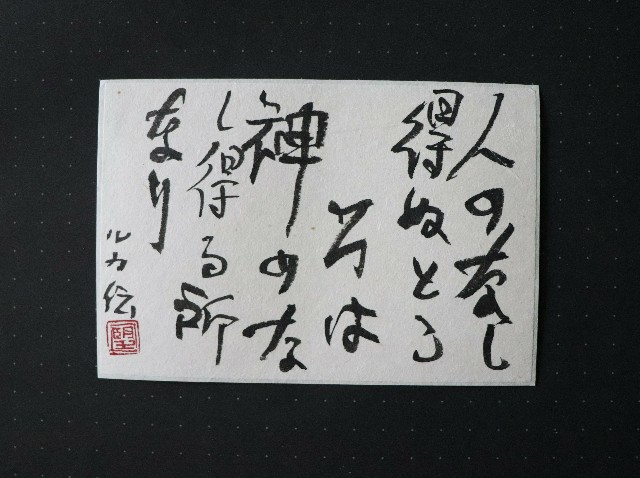 人のなし
得ぬとこ
ろは
神のな
し得る所
なり
ルカ伝